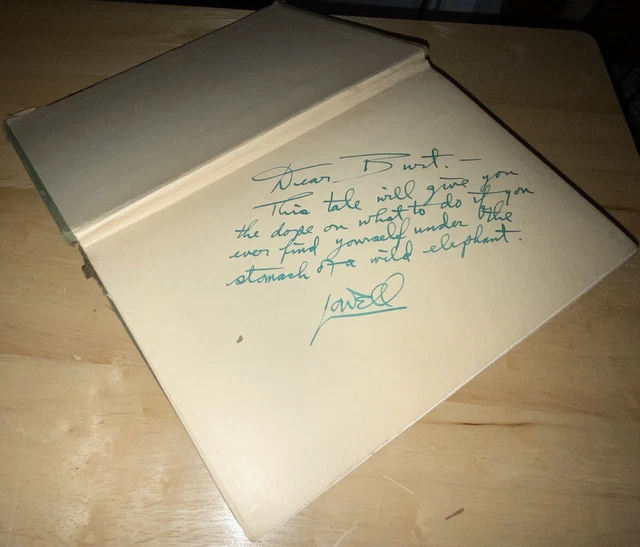 Dear Burt. —
This tale will give you
the dope on what to do if you
ever find yourself under the
stomach of a wild elephant.
Lowell